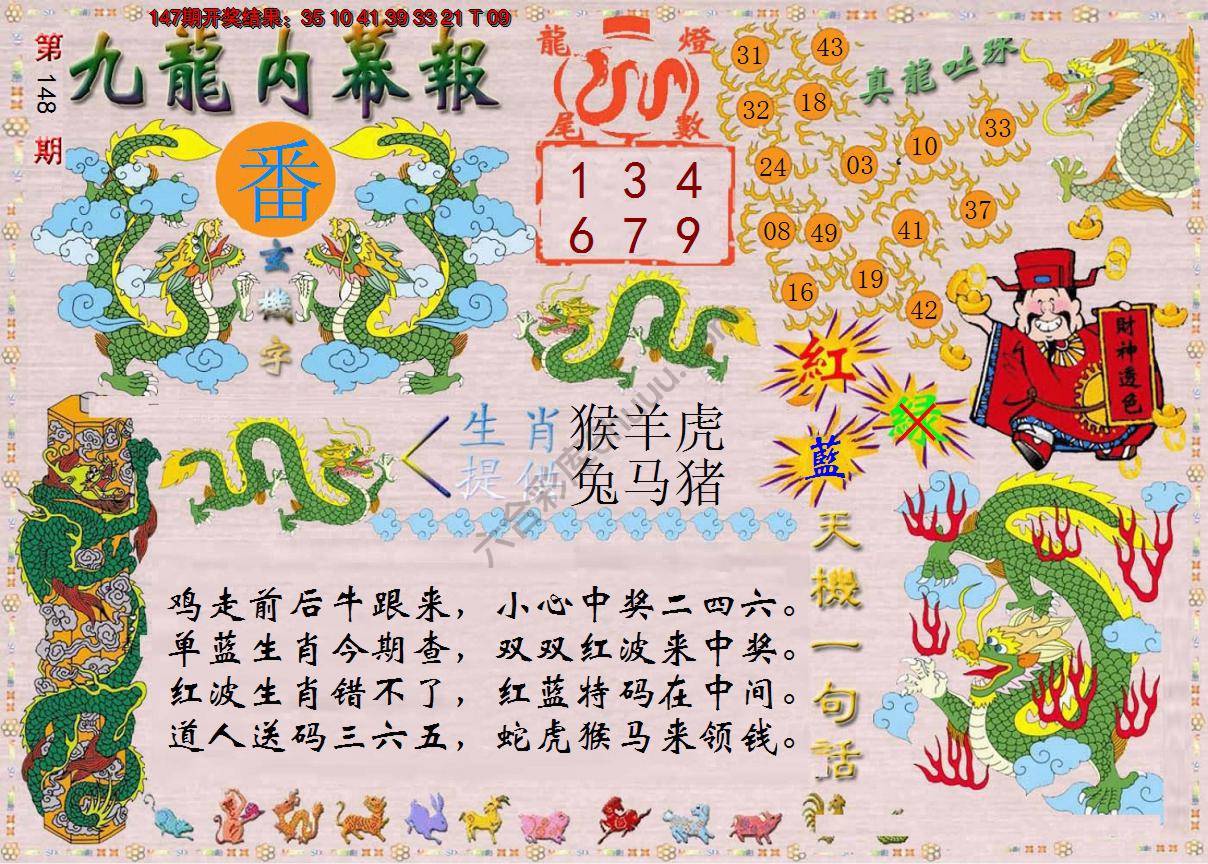 147期开奖结果：35 10 41 39 33 21 T 09
第148期
九龍内幕報
番
玄機字
龍燈
尾數
1 3 4
6 7 9
真龍吐珠
31
43
32
18
33
10
24
03
37
08
49
41
19
16
42
財神透色
紅
绿
藍
生肖
提供
猴羊虎
兔马猪
天機一句話
鸡走前后牛跟来，小心中奖二四六。
单蓝生肖今期查，双双红波来中奖。
红波生肖错不了，红蓝特码在中间。
道人送码三六五，蛇虎猴马来领钱。